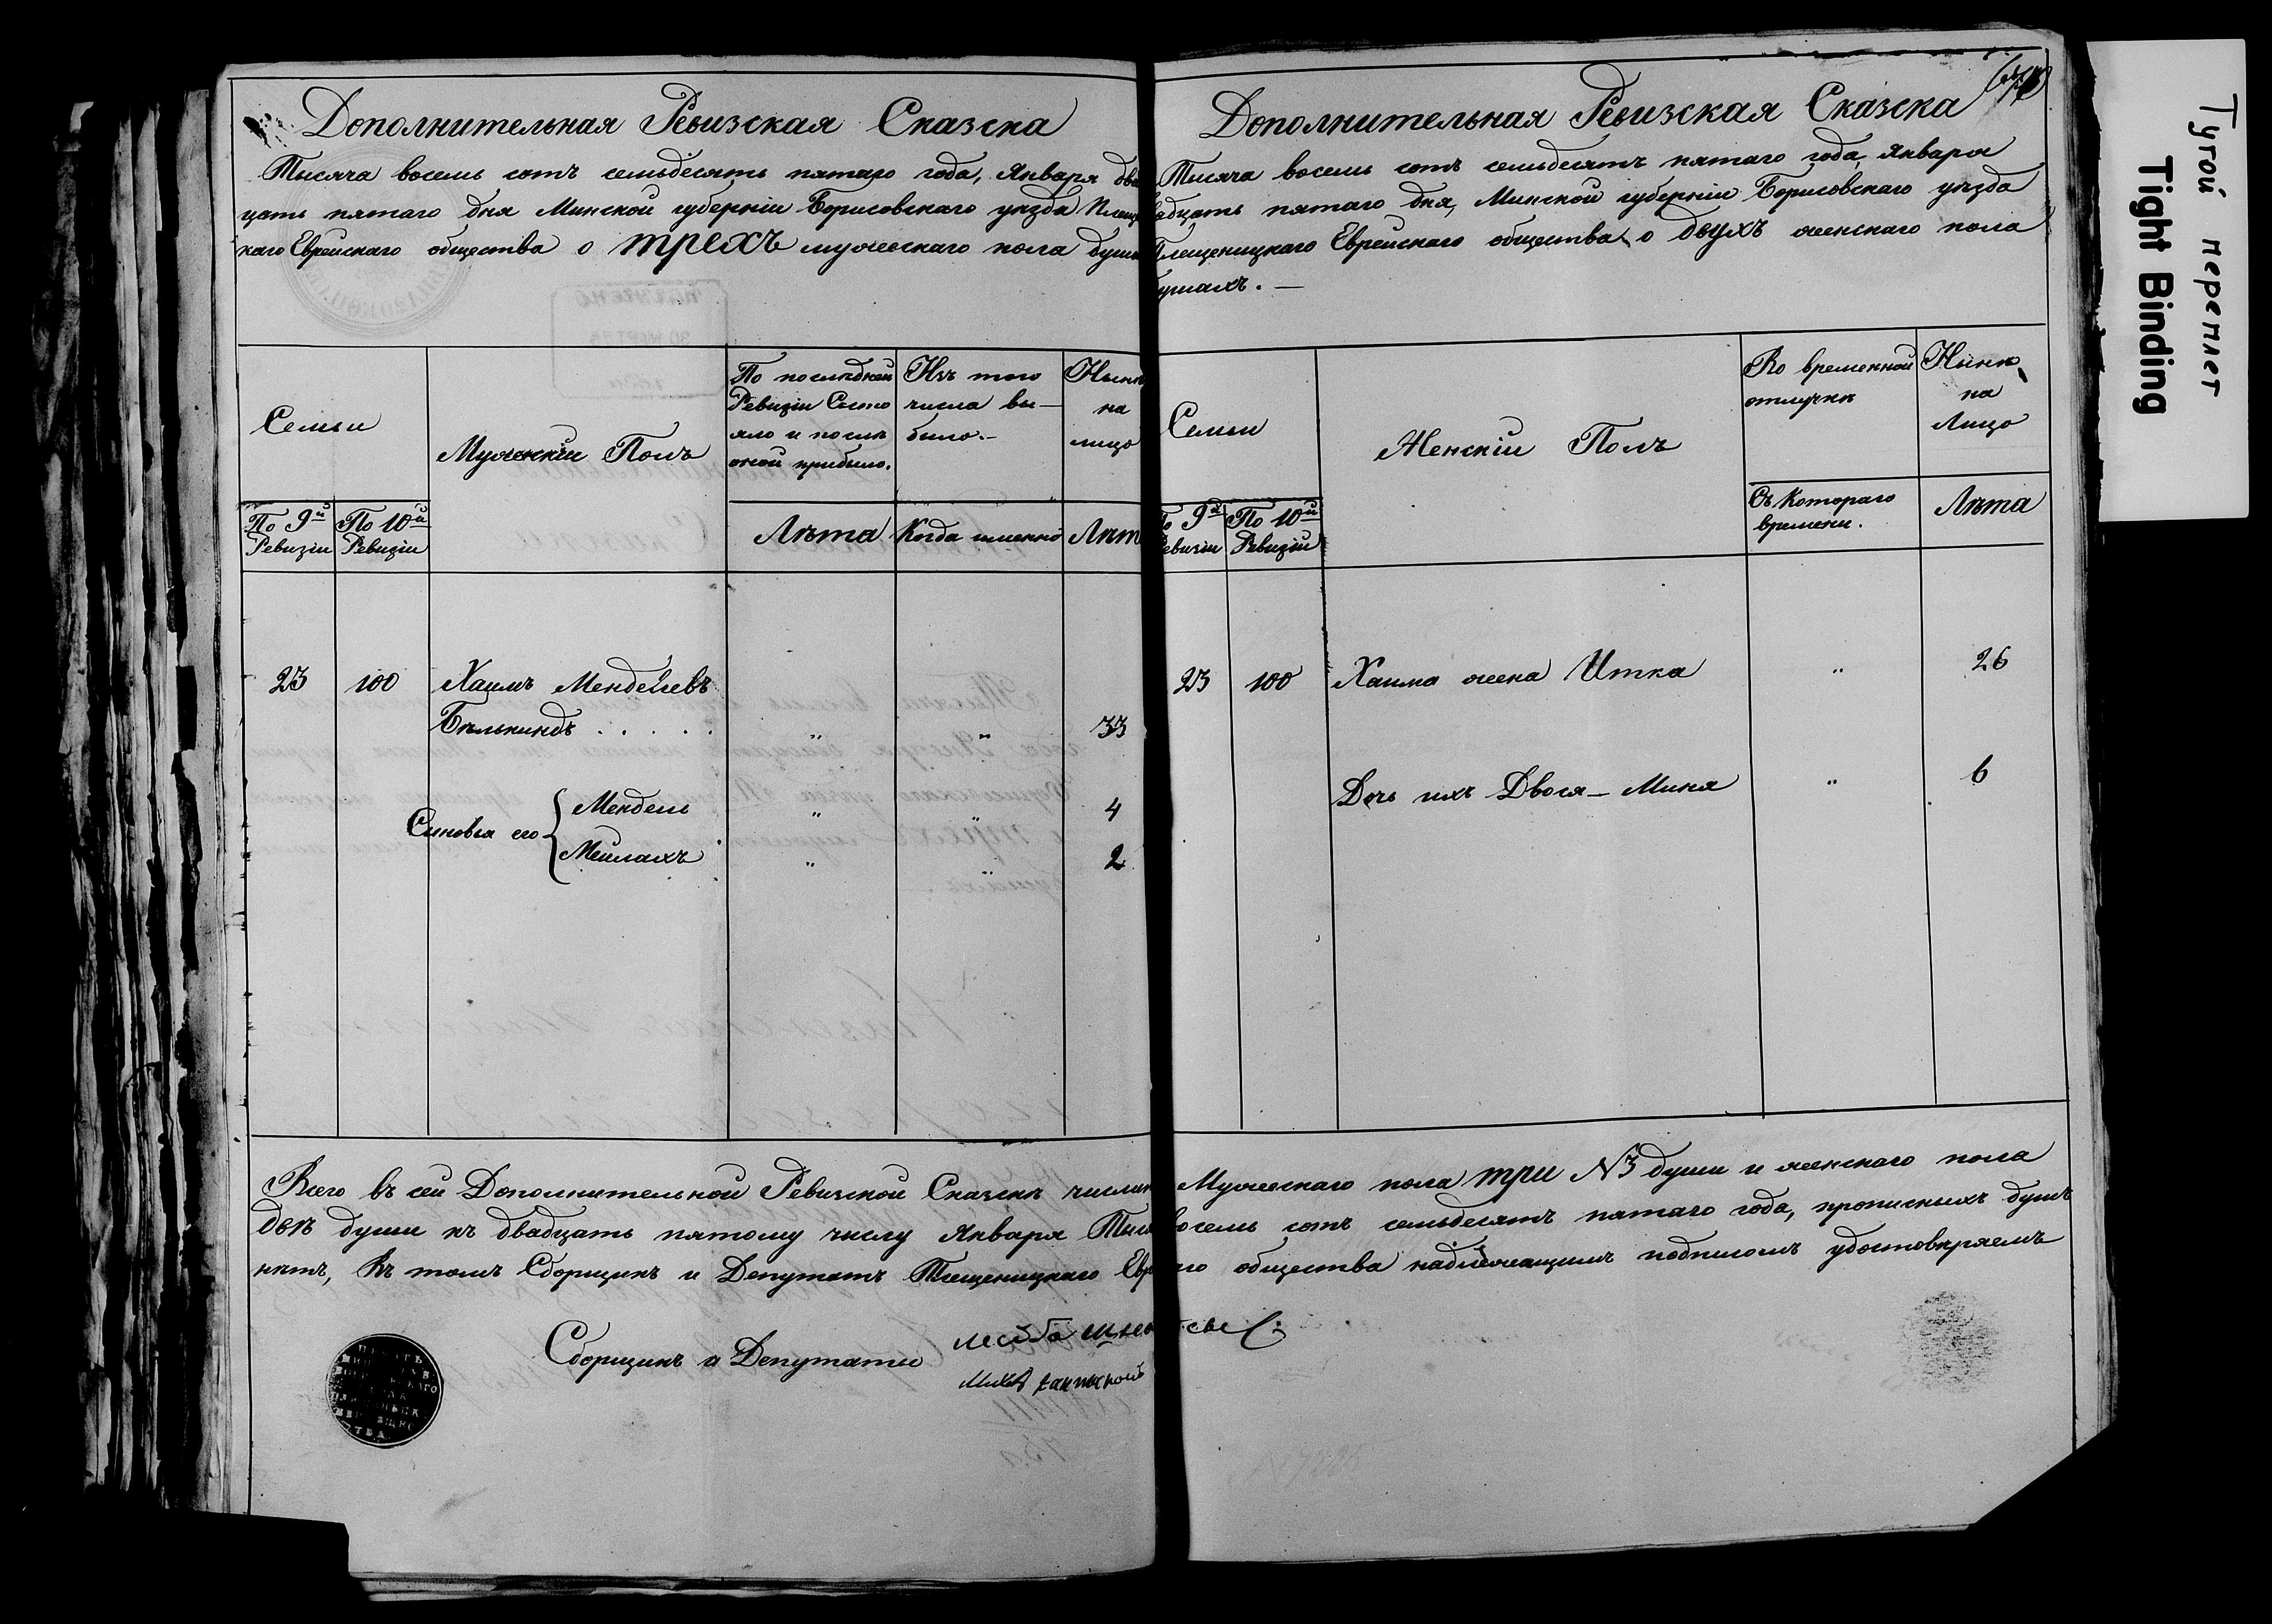 Дополнительная Ревизская Сказска
Тысяча восемь сотъ семьдесятъ пятаго года, Января два
цать пятаго дня Минской губерніи Борисовскаго уѣзда Плещ
каго Еврейскаго общества о трехъ мужескаго пола душ
Семьи
По 9й Ревизіи
По 10й Ревизіи
Мужскій Полъ
По послѣдней
Ревизіи Состо
яло и послѣ
оной прибыло.
Лѣта
Изъ того
числа вы—
было.—
Когда именно
Нынѣ
на
лицо
Лѣт
23 100 Хаимъ Менделевъ
Бѣлькиндъ . . . . . „ „ 33
Сыновья его
Мендель „ „ 4
Мейлахъ „ „ 2
Дополнительная Ревизская Сказска
Тысяча восемь сотъ семьдесятъ пятаго года, Января
адцать пятаго дня, Минской губерніи Борисовскаго уѣзда
Плещеницкаго Еврейскаго общества о двухъ женскаго пола
душахъ. —
Семьи
По 9й Ревизіи
По 10й Ревизіи
Женскій Полъ
Во временной
отлучкѣ
Съ Котораго
времени.
Нынѣ
на
Лицо
Лѣта
23 100 Хаима жена Итка „ 26
Дочь ихъ Двося — Миня „ 6
Всего въ сей Дополнительной Ревизской Сказскѣ числит Мужескаго пола три №3 души и женскаго пола
двѣ души къ двадцать пятому числу Января Тыся восемь сотъ семьдесятъ пятаго года, прописныхъ душъ
нѣтъ, Въ томъ Сборщикъ и Депутатъ Плещеницкаго Евр аго общества надлежащимъ подписомъ удостовѣряемъ
Сборщикъ и Депутаты
Тугой переплет
Tight Binding